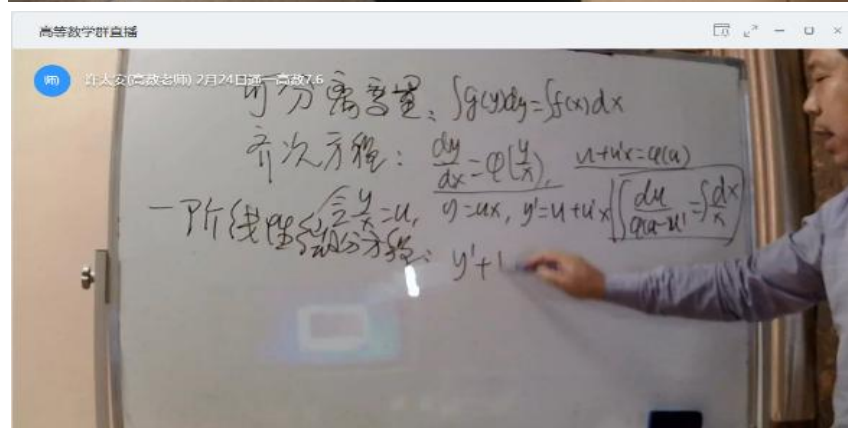 高等数学群直播
师 许太安(高数老师) 2月24日通一高数7.6
可分离变量: ∫g(y)dy=∫f(x)dx
齐次方程: dy/dx=φ(y/x), u+u'x=φ(u)
令y/x=u, y=ux, y'=u+u'x ∫du/φ(u)-u=∫dx/x
一阶线性微分方程: y'+